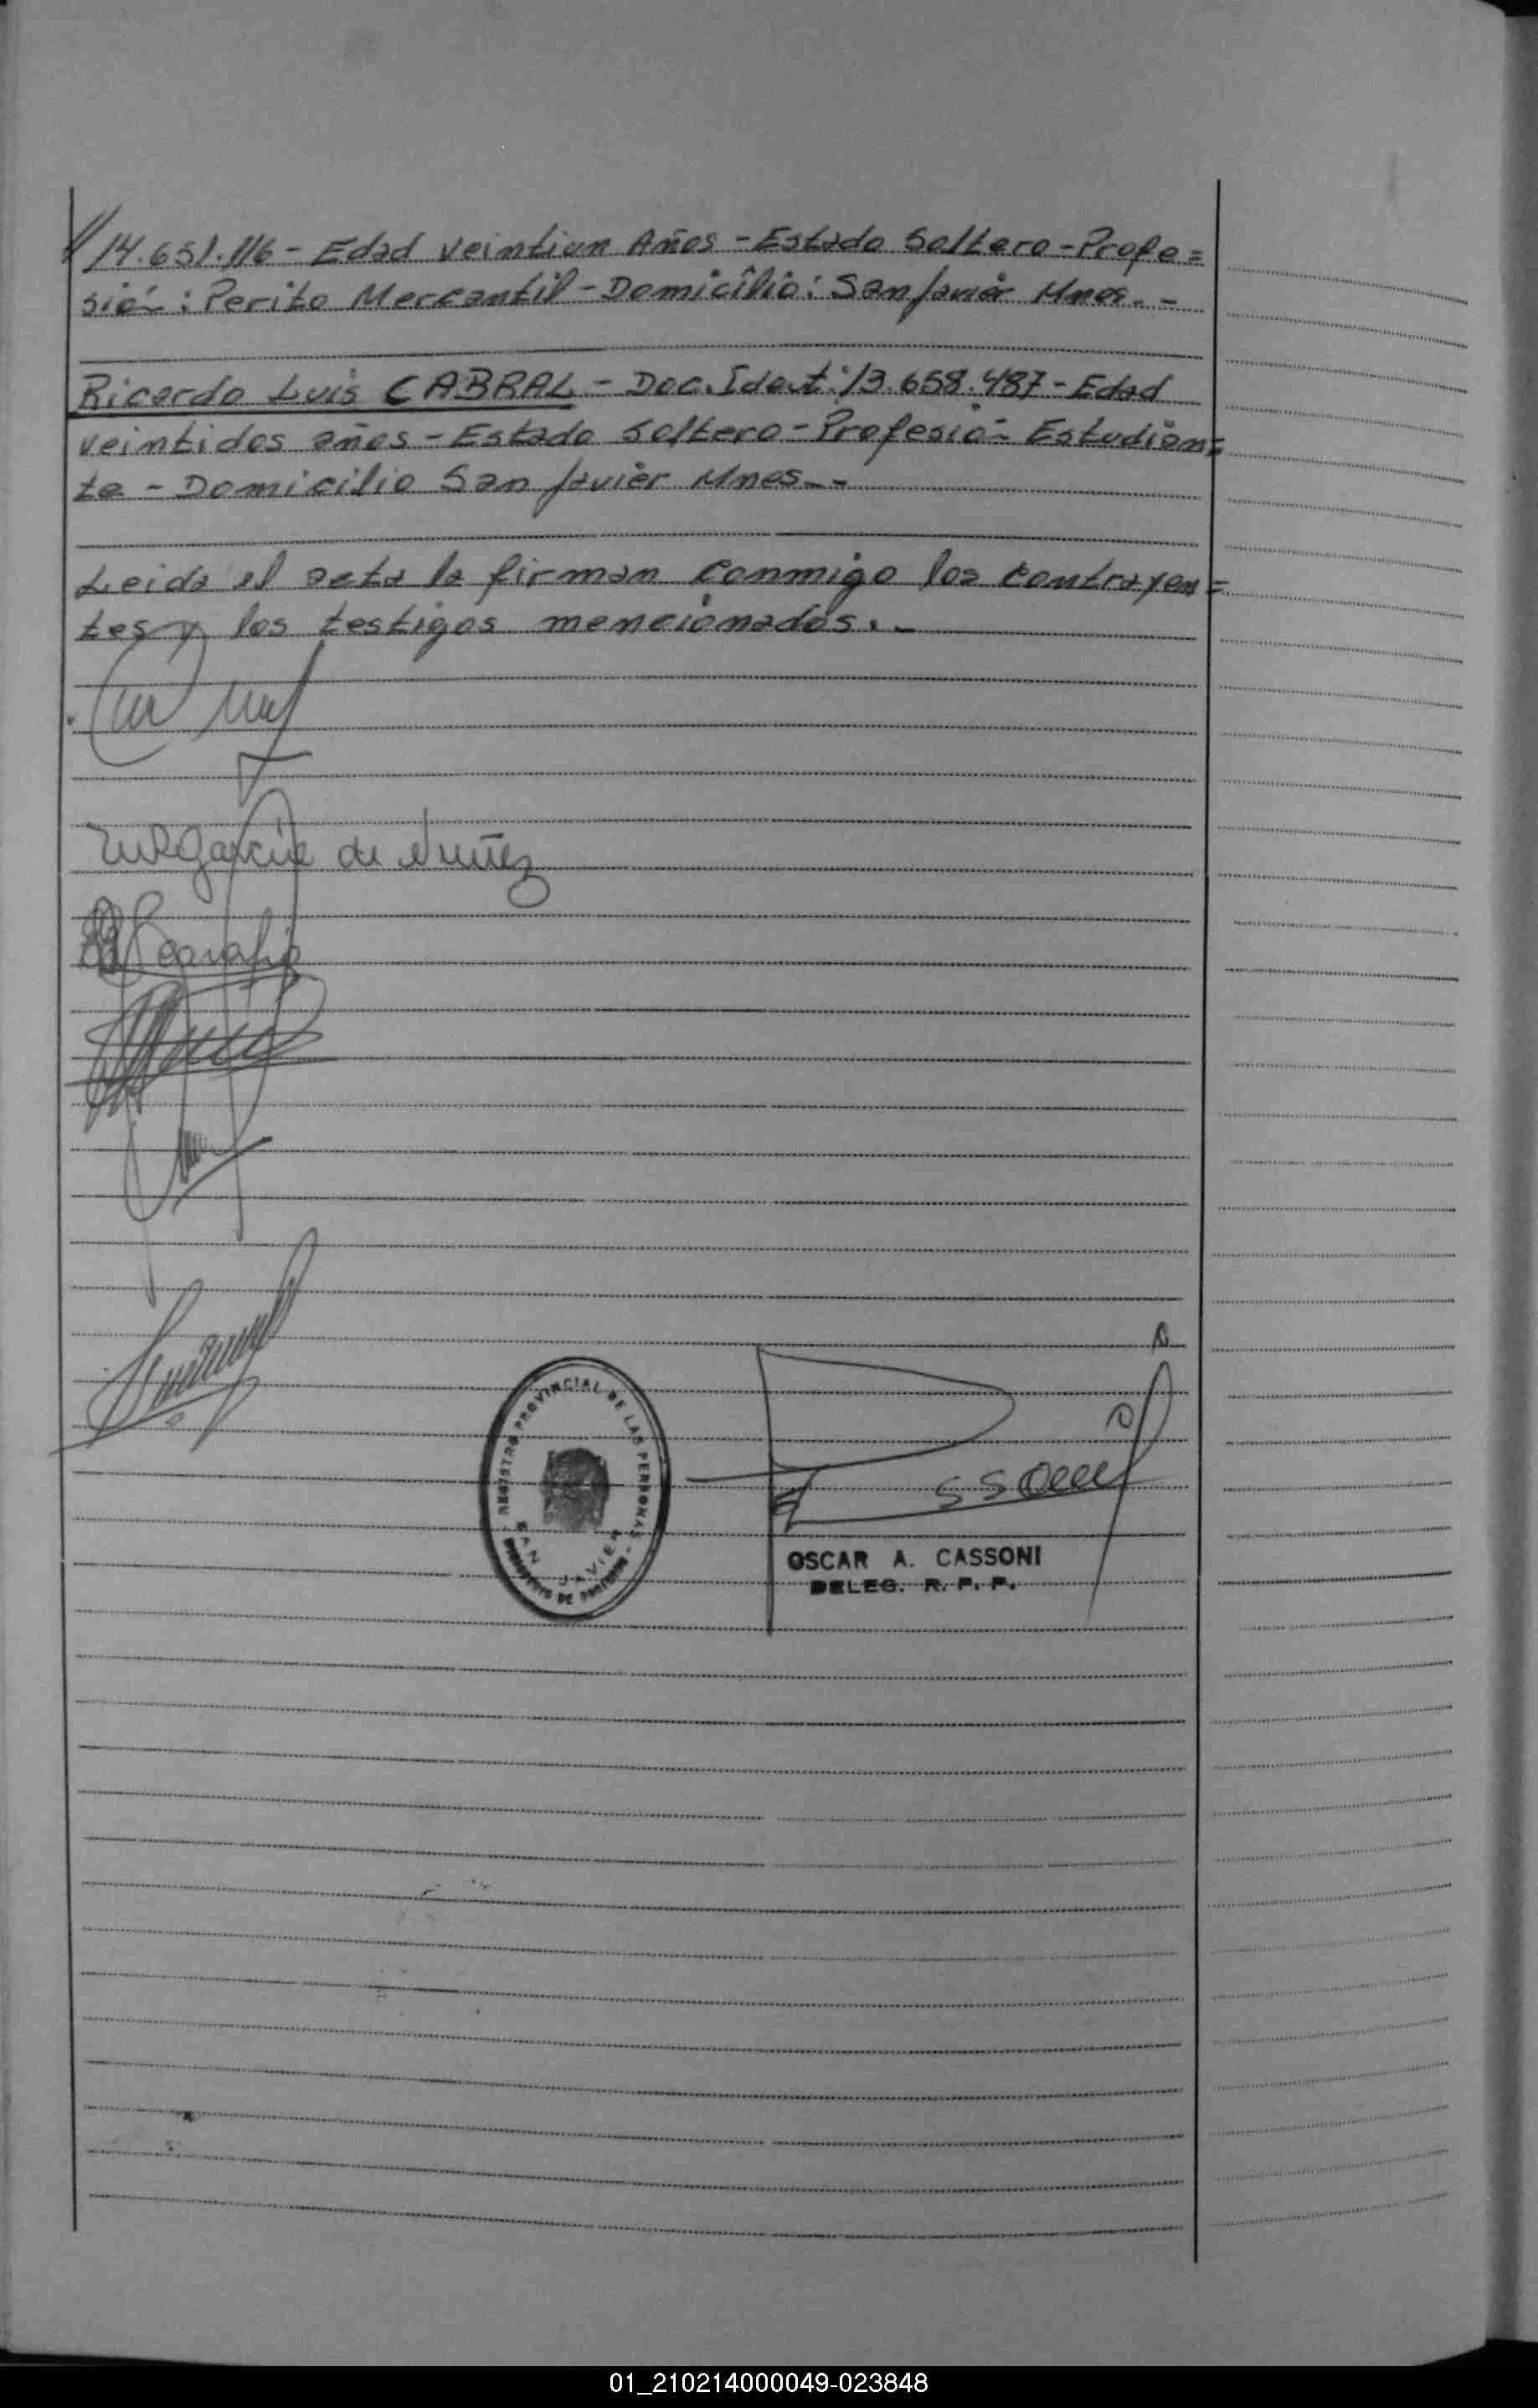 //14.651.116 - Edad veintiun Años - Estado Soltero - Profe=
sión: Perito Mercantil - Domicilio: San Javier Mnes. -
Ricardo Luis CABRAL - Doc. Ident: 13.658.487 - Edad
veintidos años - Estado Soltero - Profesión Estudian=
te - Domicilio San Javier Mnes. -
Leida el acta la firman conmigo los contrayen=
tes y los testigos mencionados. -
Garcia de Nuñez
REGISTRO PROVINCIAL DE LAS PERSONAS
SAN JAVIER
OSCAR A. CASSONI
DELEG. R. P. P.
01_210214000049-023848